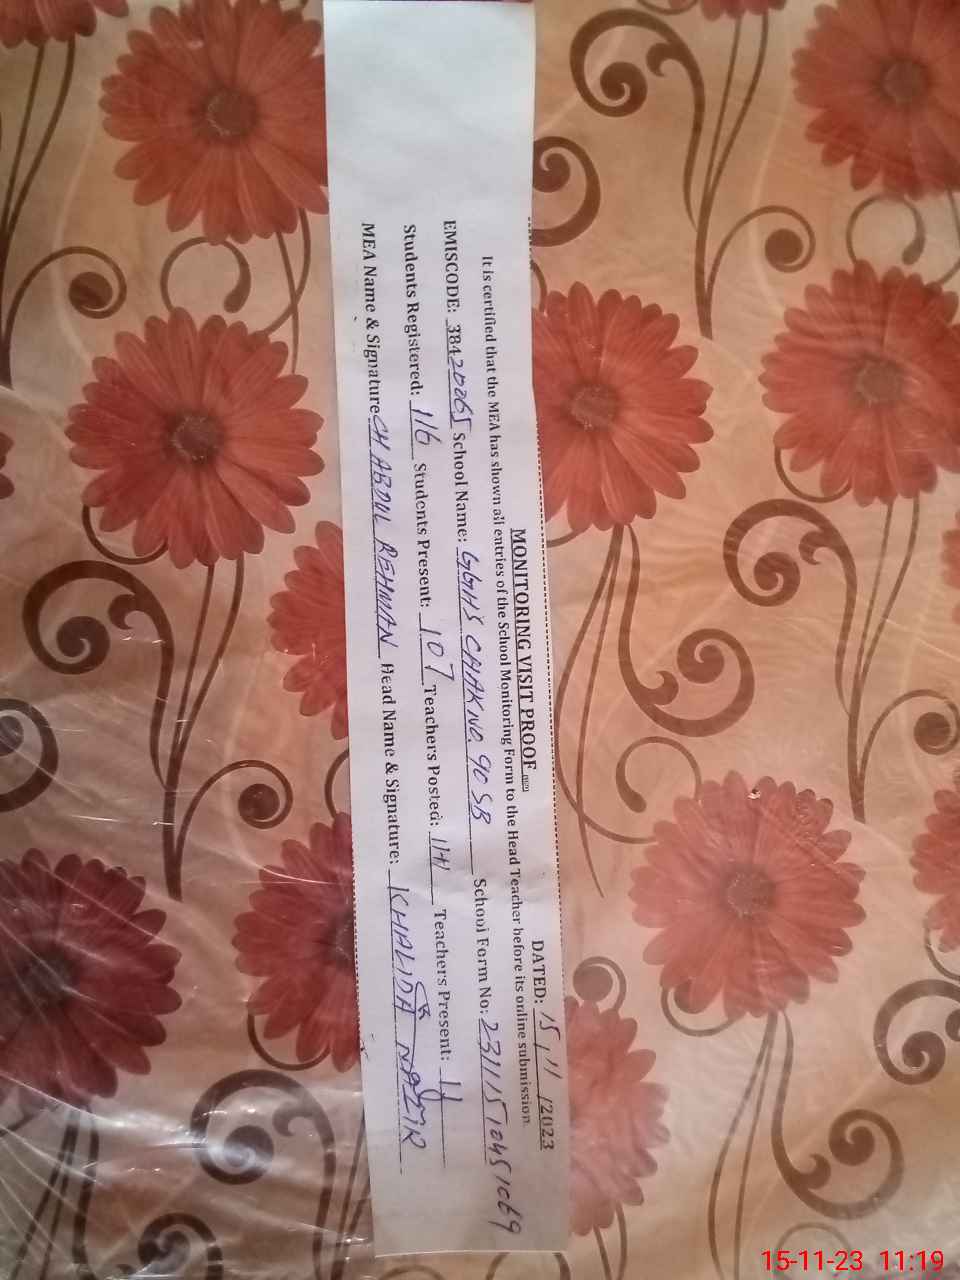 MONITORING VISIT PROOF
DATED: 15/11/2023
It is certified that the MEA has shown all entries of the School Monitoring Form to the Head Teacher before its online submission.
EMISCODE: 38420065 School Name: GGHS CHAK NO. 90 SB School Form No: 2311151045
Students Registered: 116 Students Present: 107 Teachers Posted: Teachers Present:
MEA Name & Signature CH ABDUL REHMAN Head Name & Signature: KHALIDA NAZIR
15-11-23 11:19